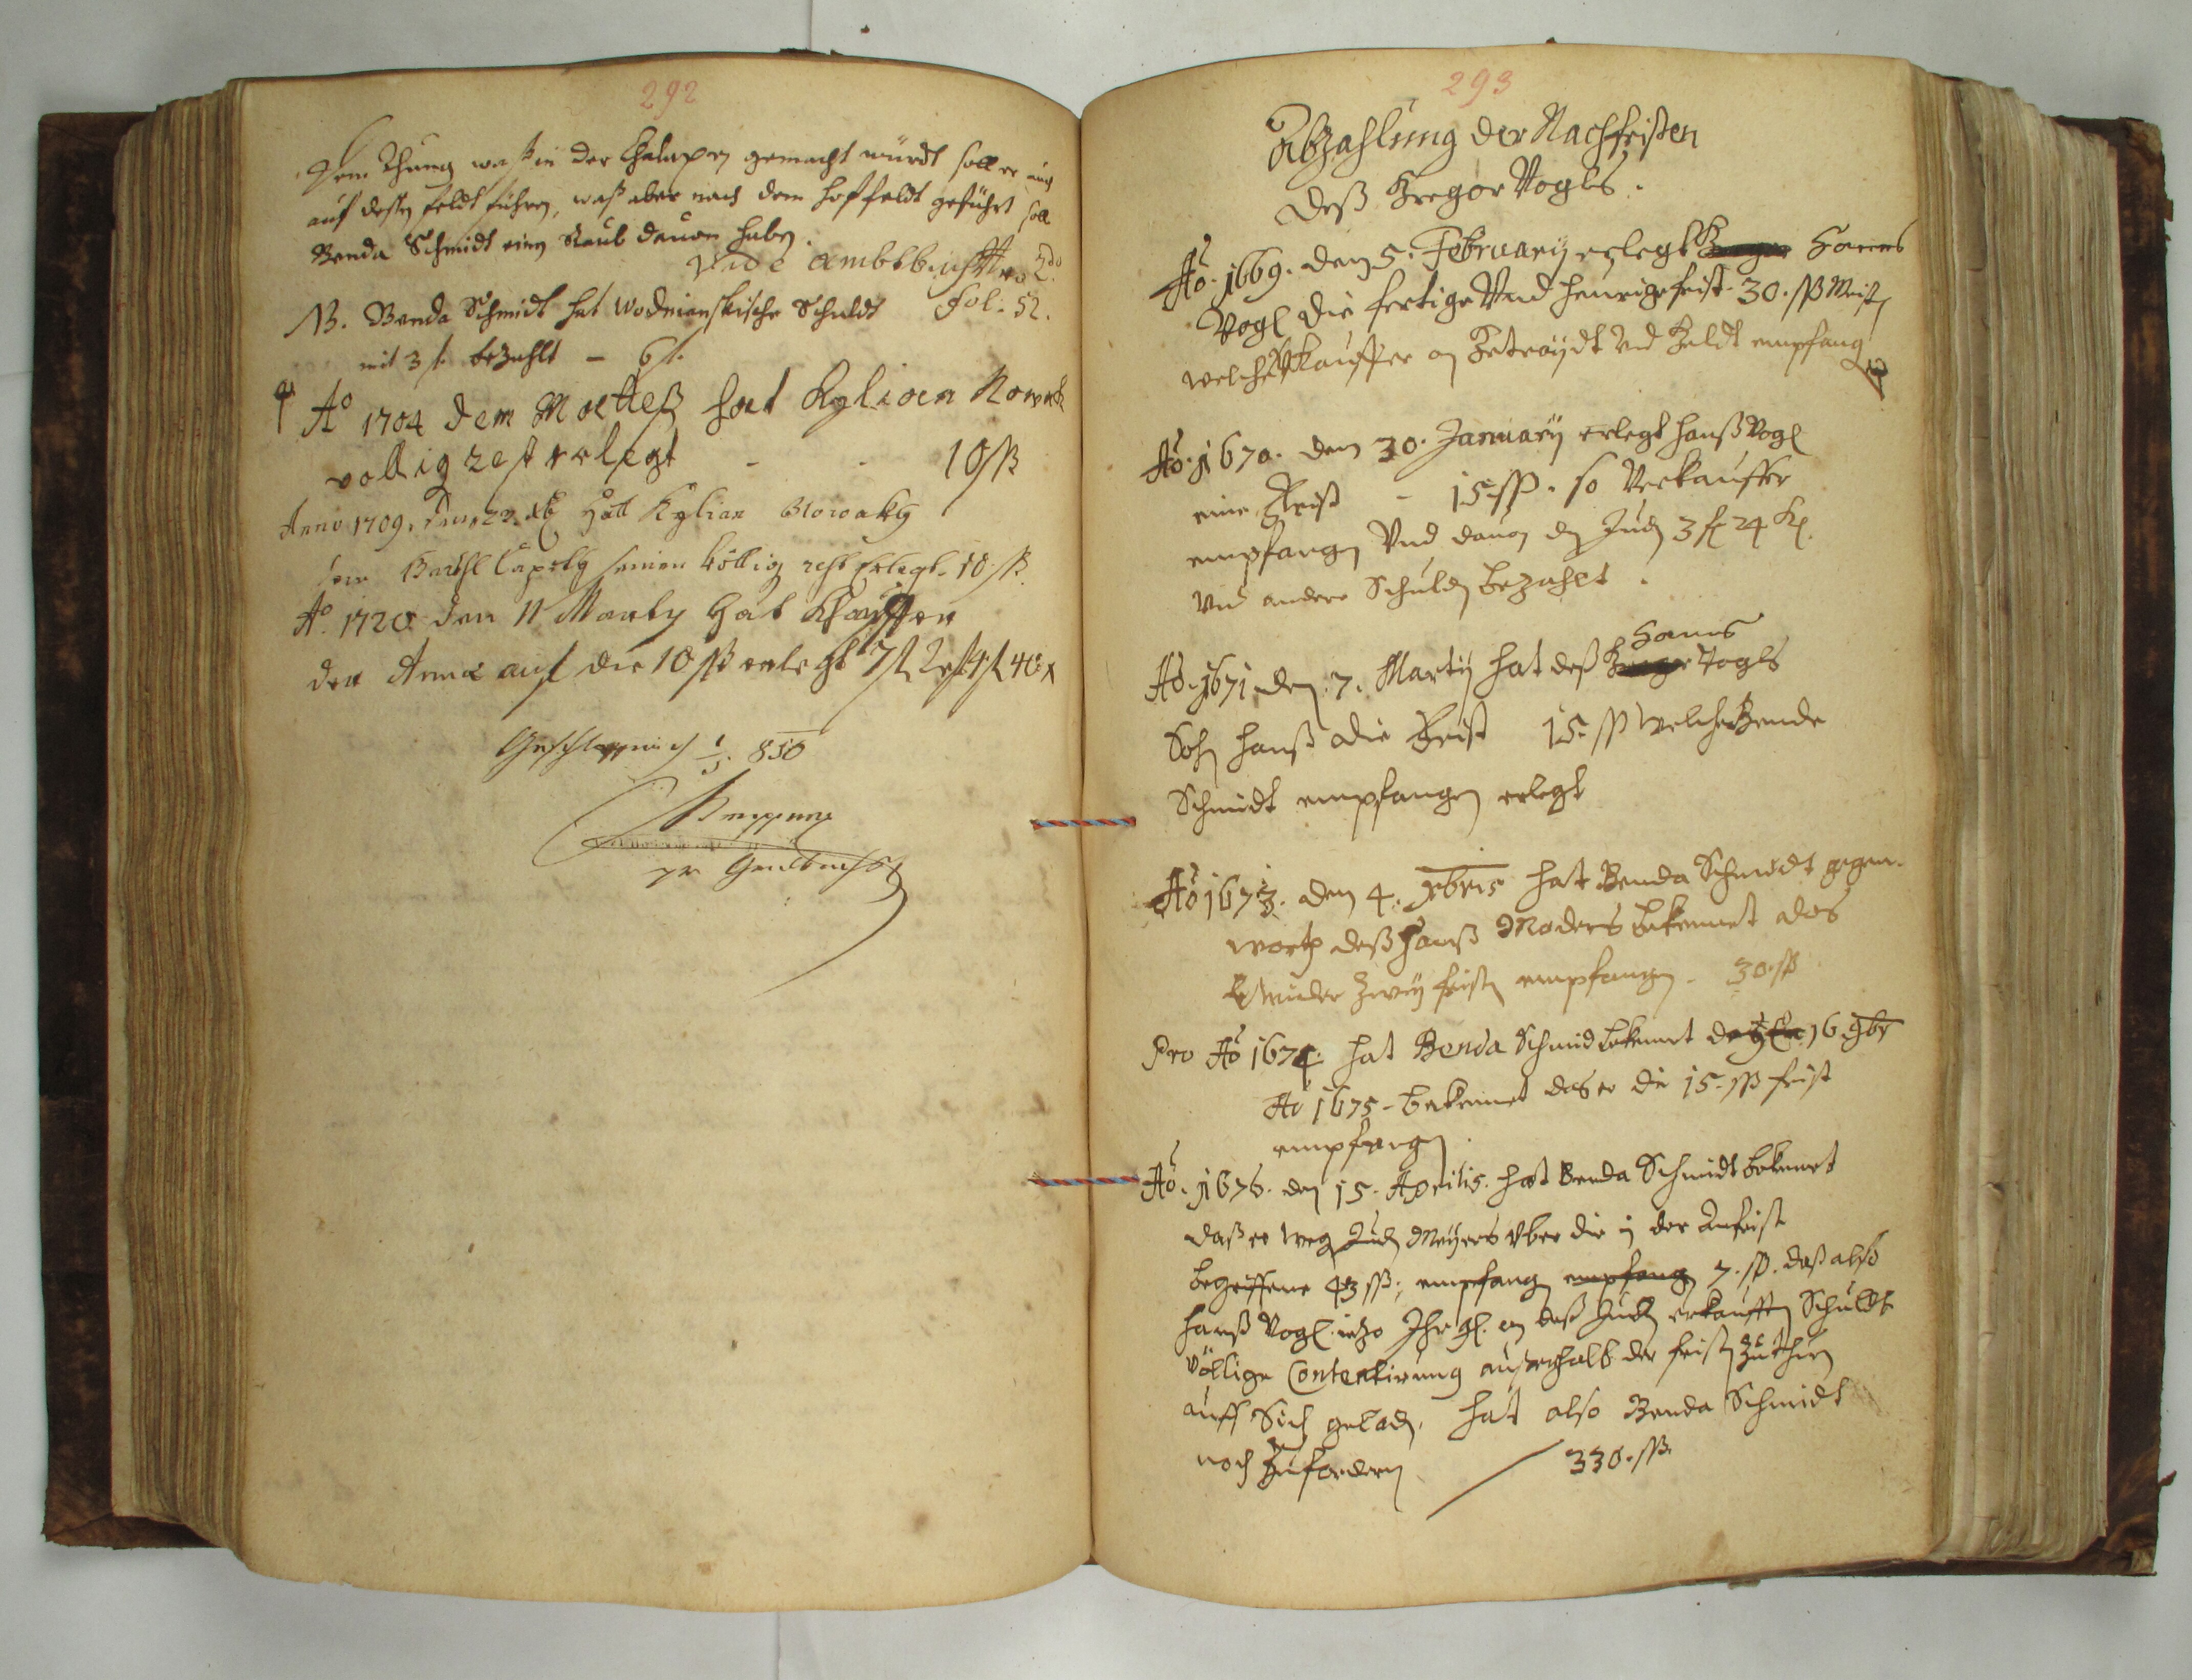 292
Dem Thung waß in der Chaluppen gemacht würdt soll er auch
auf dessen feldt führen, waß aber nach dem hoffeldt geführt soll
Benda Schmidt einen Raub dauon haben.
Vide Ambtbuch Nro 2do
NB. Benda Schmidt hat Wodnianskische Schuldt Fol. 52.
mit 3 f. bezahlt – 6 f.
Ao 1704 dem hat Kylian Nowak
vollig rest erlegt - - 10 ß
Anno 1709, den 23. xb hatt Kylian Nowakh
dem Barthl seinen völlig rest Erlegt. 10 ß.
Ao. 1720 den 11 Marty hat Khauffer
der Anna auf die 10 ß erlegt 7 f rest 4 f 40 x
1/5 850
pr Grundbuchs
293
Abzahlung der Nachfristen
deß Gregor Vogls.
Ao. 1669. den 5. February erlegt Hanns
Vogl die fertige Vnd heurige frist. 30. ß Meiß
welche Vkauffer an Getraydt Vnd Geldt empfang
Ao. 1670. den 30. January erlegt Hanß Vogl
eine Frist - 15 ß. so Verkauffer
empfangen Vnd dauon den Juden 3 f 24 Kr.
Vnd andere Schulden bezahlt.
Hanns
Ao. 1671 den 7. Martij hat deß Vogls
Sohn Hanß die Frist 15. ß welche Benda
Schmidt empfangen erlegt
Ao 1673. den 4. xbris hat Benda Schmidt gegen-
wortt deß Hanß Maders bekennet das
Er wider zwey fristen empfangen - 30. ß
Pro Ao 1674. hat Benda Schmid bekennet 16 9br
Ao 1675 - bekennet das er die 15. ß frist
empfangen.
Ao. 1676. den 15. Aprilis. hat Benda Schmidt bekennet
daß er wegen Juden Meyers Vber die in der Anfrist
begriffene 43 ß; empfangen empfangen 7. ß. daß also
Hanß Vogl. iezo Ihr gl. an deß Juden erkaufften Schuldt
völlige Contentirung ausserhalb der fristen zu thuen
auff Sich geladen. hat also Benda Schmidt
noch Zufordern 330. ß.